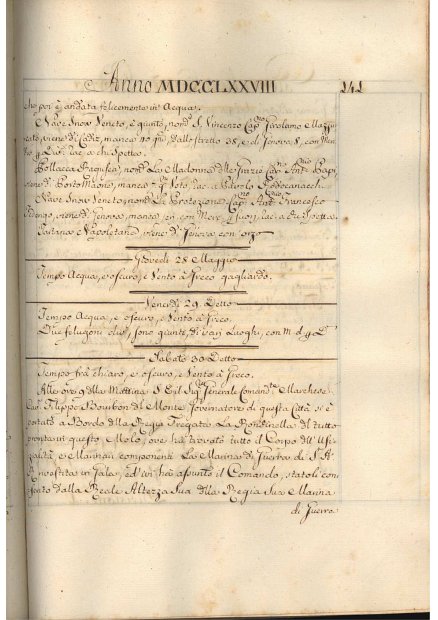 Anno MDCCLXXVIII 141
che poi è andata felicemente in Acqua.
Nave Snow Veneto, è giunto, nom.º S. Vincenzo Cap.no Girolamo
viene di Cadiz, manca 40 gni, dallo stretto 28, e di Genova 8, con
Pollacca Ragusea, nom. La Madonna delle Grazie Cap.no Ant.
viene di Porto Maone, manca
Nave Snow Veneto, nom. La Protezione Cap.no Ant. Francesco
viene di Genova, manca
e Napoletana, viene di Genova con orzo
Giovedì 28 Maggio
Tempo Acqua, e oscuro, e Vento à Greco gagliardo.
Venerdì 29 Detto
Tempo Acqua, e oscuro, e Vento à Greco.
Due felugoni due, sono giunti, di varj Luoghi, con m. d. g. D.
Sabato 30 Detto
Tempo frà chiaro, e oscuro, e Vento à Greco.
Alle ore 9 della Mattina S. E. il Sig.re Generale Comand.te Marchese
Cav. Filippo Bourbon del Monte Governatore di questa Città si è
portato à Bordo della Regia Fregata La Rondinella di tutto
pronta in questo Molo, ove hà trovato tutto il Corpo dell' Ufi-
zialità e Marinari componenti La Marina di Guerra di S. A.
R. vestita in Gala, ed' ivi hà assunto il Comando, statoli con-
ferito dalla Reale Altezza Sua della Regia Sua Marina
di Guerra